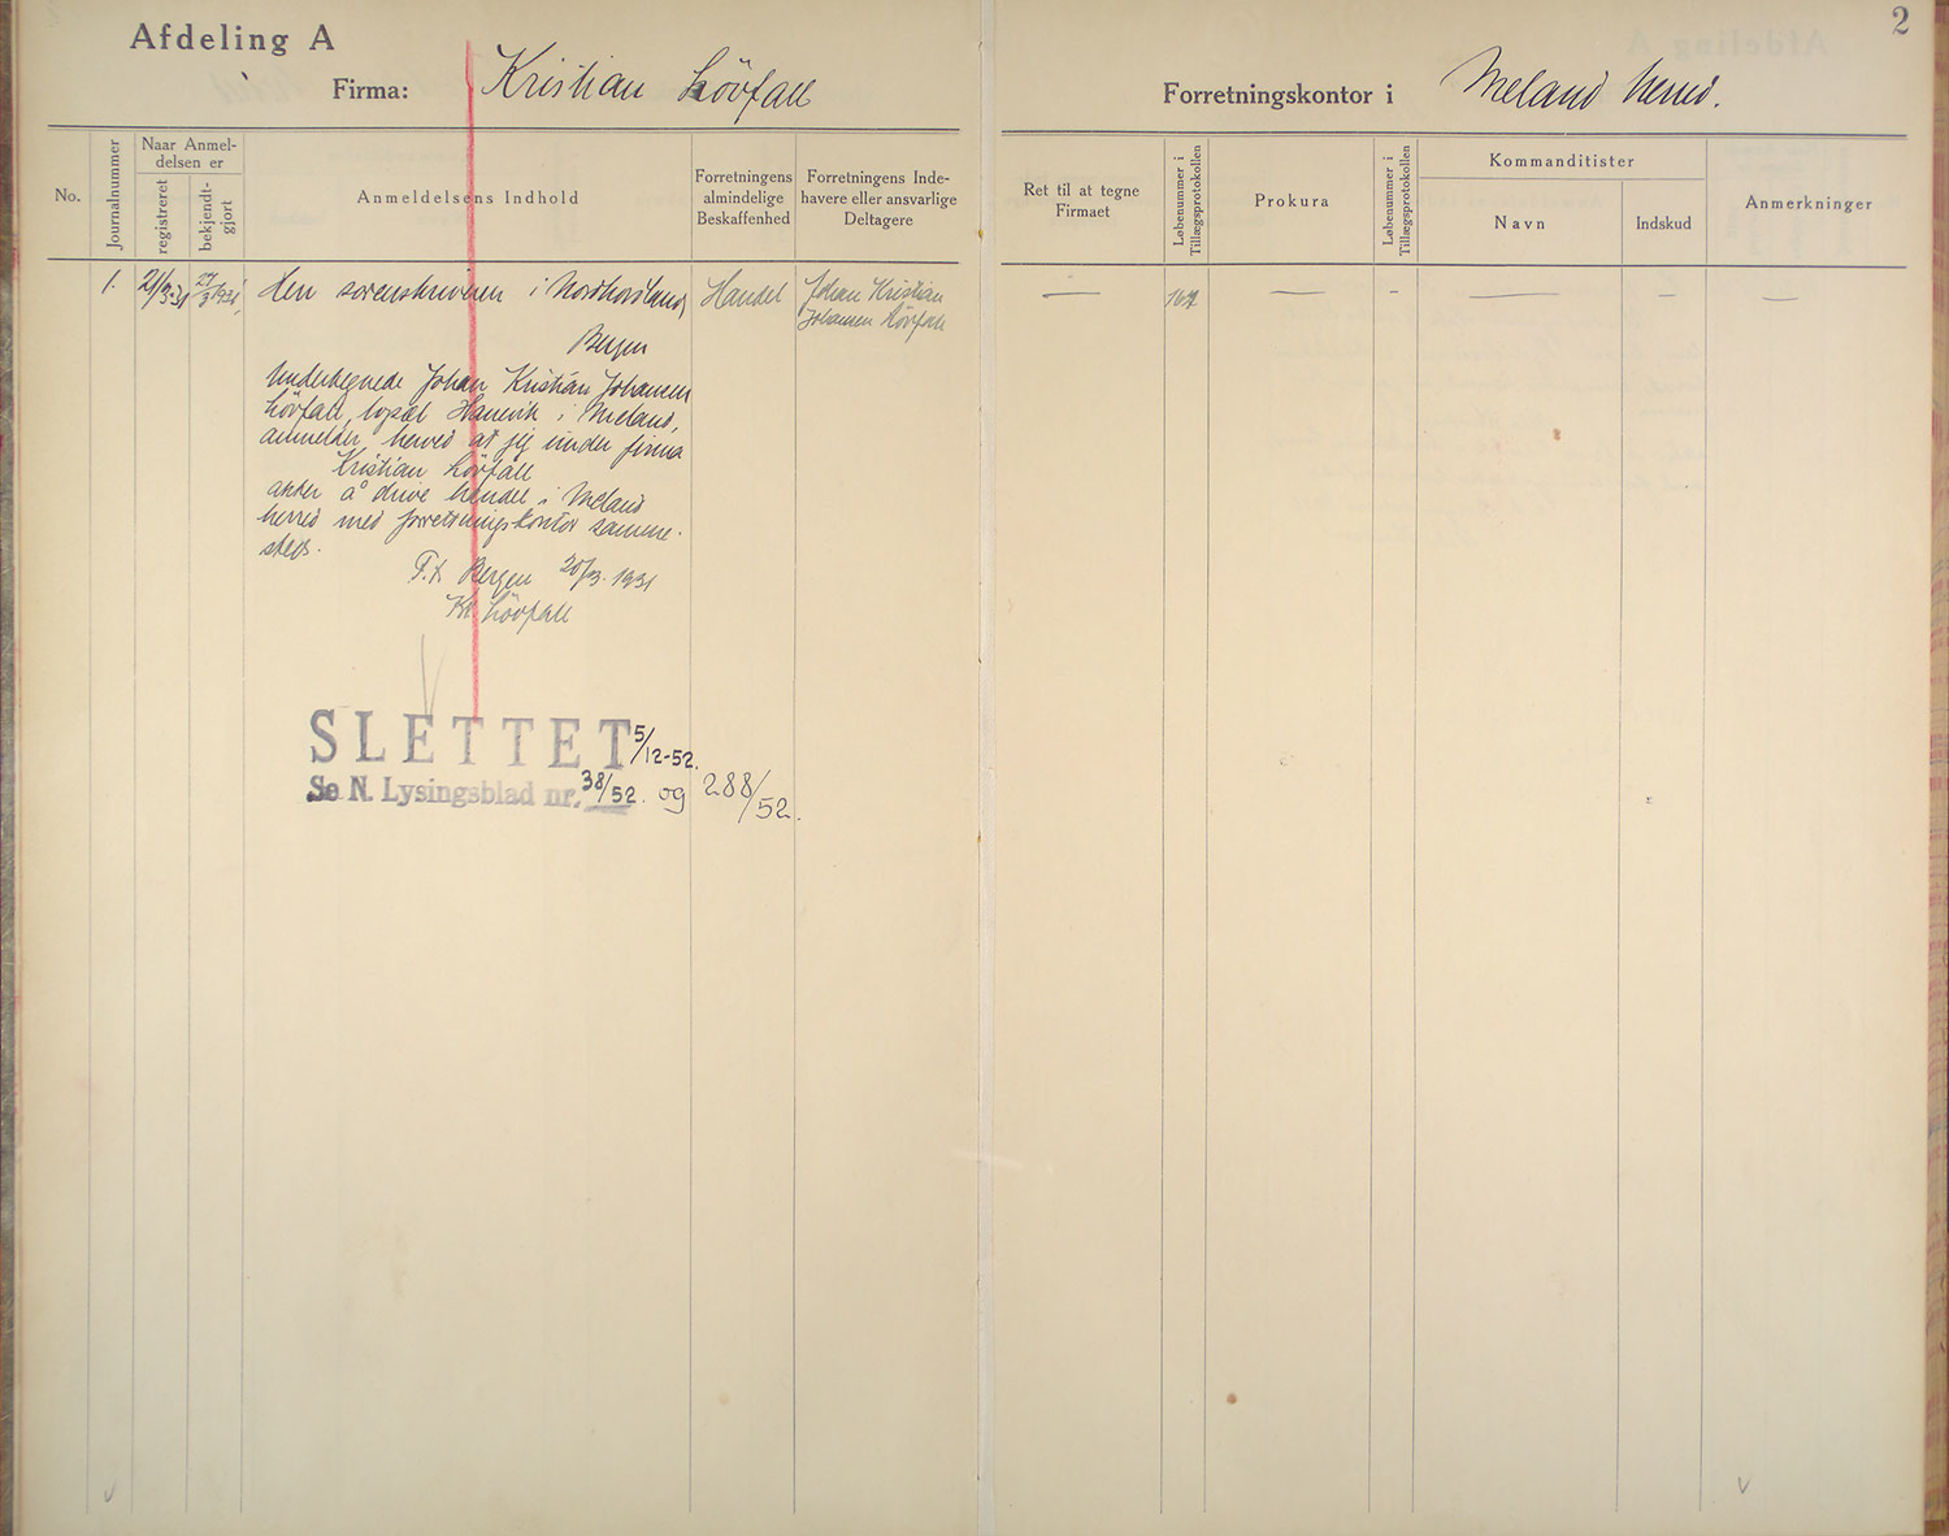 Afdeling A
2
Firma: Kristian Lövfall
Forretningskontor i Meland herred.
No.
Journalnummer
Naar Anmel-
delsen er
registreret
bekjendt-
gjort
Anmeldelsens Indhold
Forretningens
almindelige
Beskaffenhed
Forretningens Inde-
havere eller ansvarlige
Deltagere
Ret til at tegne
Firmaet
Løbenummer i
Tillægsprotokollen
Prokura
Løbenummer i
Tillægsprotokollen
Kommanditister
Navn
Indskud
Anmerkninger
1.
21/3-31
27/3 1931
Herr sorenskriveren i Nordhordland,
Bergen
Undertegnede Johan Kristian Johansen
Lövfall, bopæl Hanevik i Meland,
anmelder herved at jeg under firma
Kristian Lövfall
akter å drive handel i Meland
herred med forretningskontor samme-
steds.
P.t. Bergen 20/3. 1931
Kr. Lövfall
Handel
Johan Kristian
Johansen Lövfall
167
SLETTET 5/12-52.
Se N. Lysingsblad nr. 38/52. og 288/52.